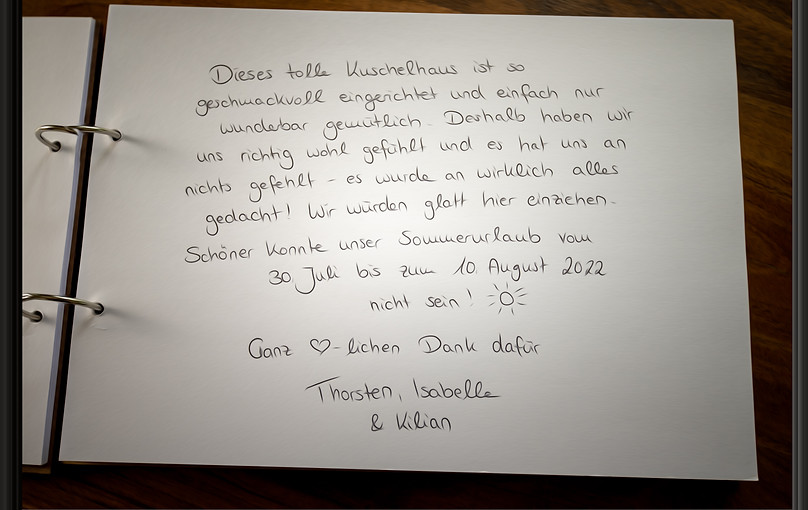 Dieses tolle Kuschelhaus ist so
geschmackvoll eingerichtet und einfach nur
wunderbar gemütlich. Deshalb haben wir
uns richtig wohl gefühlt und es hat uns an
nichts gefehlt - es wurde an wirklich alles
gedacht! Wir würden glatt hier einziehen.
Schöner konnte unser Sommerurlaub vom
30. Juli bis zum 10. August 2022
nicht sein! ☀
Ganz ♡-lichen Dank dafür
Thorsten, Isabelle
& Kilian